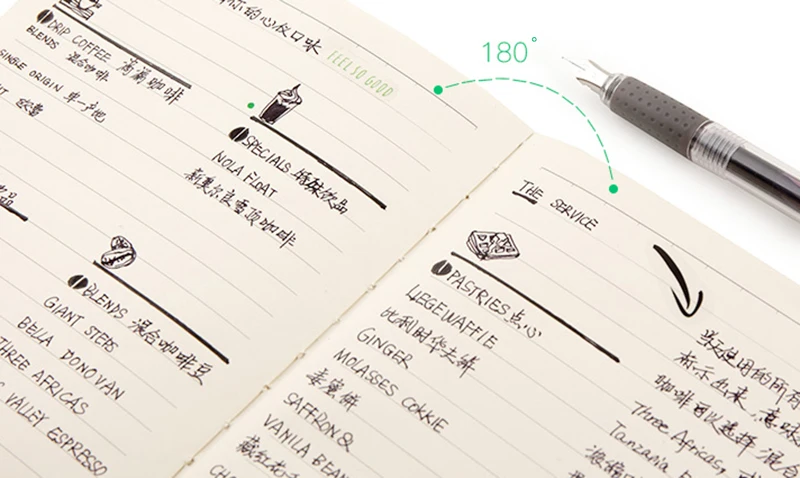 你的心仪口味 FEEL SO GOOD
DRIP COFFEE 滴漏咖啡
BLENDS 混合咖啡
SINGLE ORIGIN 单一产地
SPECIALS 特殊饮品
NOLA FLOAT
新奥尔良雪顶咖啡
BLENDS 混合咖啡豆
GIANT STEPS
BELLA DONOVAN
THREE AFRICAS
VALLEY ESPRESSO
180°
THE SERVICE
PASTRIES 点心
LIEGE WAFFLE
比利时华夫饼
GINGER
MOLASSES COKKIE
姜蜜饼
SAFFRON &
VANILA BEAN
藏红花
当天使用的所有
标示出来，意味
咖啡可以选择混合
Three Africas,
Tanzania